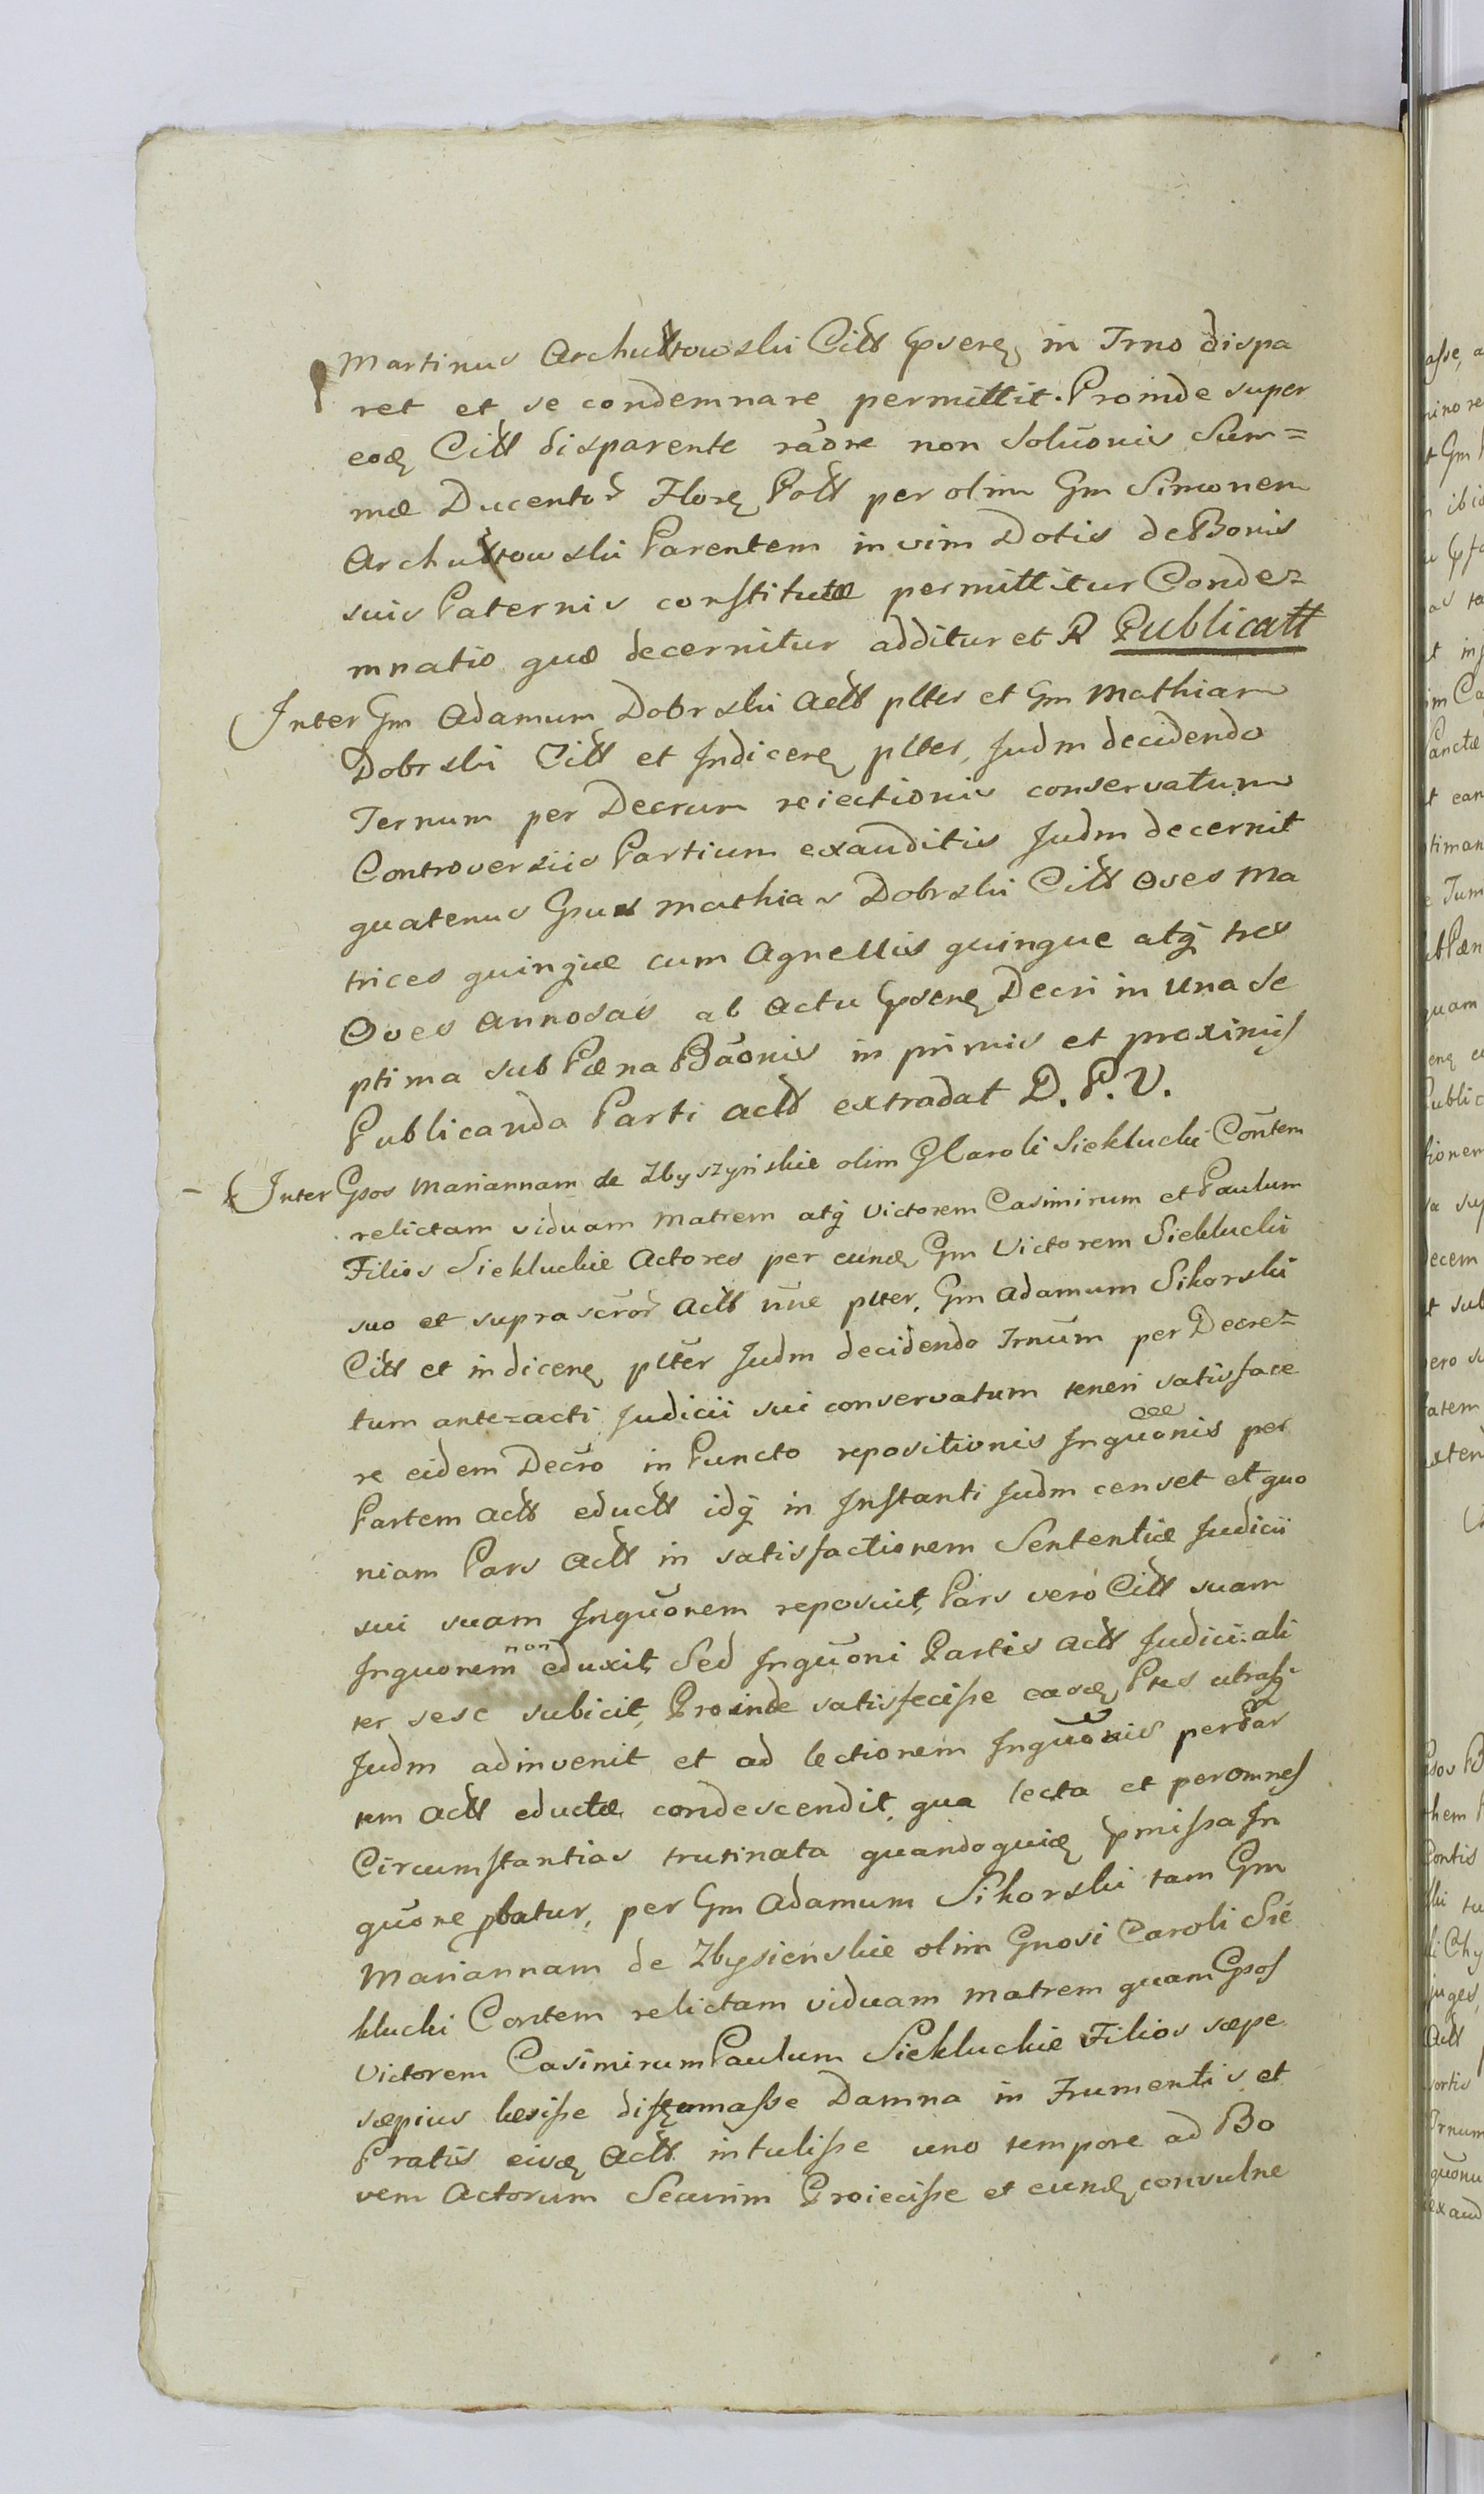 Martinus Archutowski Citt psens in Trno dispa
ret et se condemnare permittit. Proinde super
eod Citt disparente raone non Soluonis Sum=
mæ Ducentor Flore Poll per olim Gm Simonem
Archutowski Parentem in vim Dotis de Bonis
suis Paternis constitutæ permittitur Conde=
mnatio quæ decernitur additur et R Publicatt
Inter Gm Adamum Dobrski Actt pltes et Gm Mathiam
Dobrski Citt et Indicene pltes, Judm decidendo
Ternum per Decrum reiectionis conservatum
Controversiis Partium exauditis Judm decernit
quatenus Gsus Mathias Dobrski Citt Oves Ma
trices quinque cum Agnellis quinque atq tres
Oves annosas ab actu psene Decri in una Se
ptima sub Pæna Baonis in primis et proximis
Publicanda Parti actt extradat D. P. V.
Inter Gsos Mariannam de Zbyszyńskie olim G Caroli Siekluckie Contem
relictam viduam Matrem atq Victorem Casimirum et Paulum
Filios Siekluckie Actores per eund Gm Victorem Sieklucki
suo et suprascror Actt nne plter, Gm Adamum Sikorski
Citt et indicene plter Judm decidendo Trnum per Decre=
tum ante=acti Judicii sui conservatum teneri satisface
re eidem Decro in Puncto repositionis Inquonis per
Partem Actt eductt idq in Instanti Judm censet et quo
niam Pars Actt in satisfactionem Sententiæ Judicii
sui suam Inquonem reposuit, Pars vero Citt suam
Inquonem non eduxit, Sed Inquoni Partis Actt Judiciali
ter sese subicit, Proinde satisfecisse easd Ptes utrasq
Judm adinvenit et ad lectionem Inquonis per Par
tem Actt eductæ condescendit, qua lecta et per omnes
Circumstantias trutinata quandoquid pmissa In
quone pbatur, per Gm Adamum Sikorski tam Gm
Mariannam de Zbysienskie olim Gnosi Caroli Sie
klucki Contem relictam viduam Matrem quam Gsos
Victorem Casimirum Paulum Siekluckie Filios sæpe
sæpius læsisse diffamasse Damna in Frumentis et
Pratis eiusd Actt intulisse uno tempore ad Bo
vem Actorum Securim Proiecisse et eund convulne